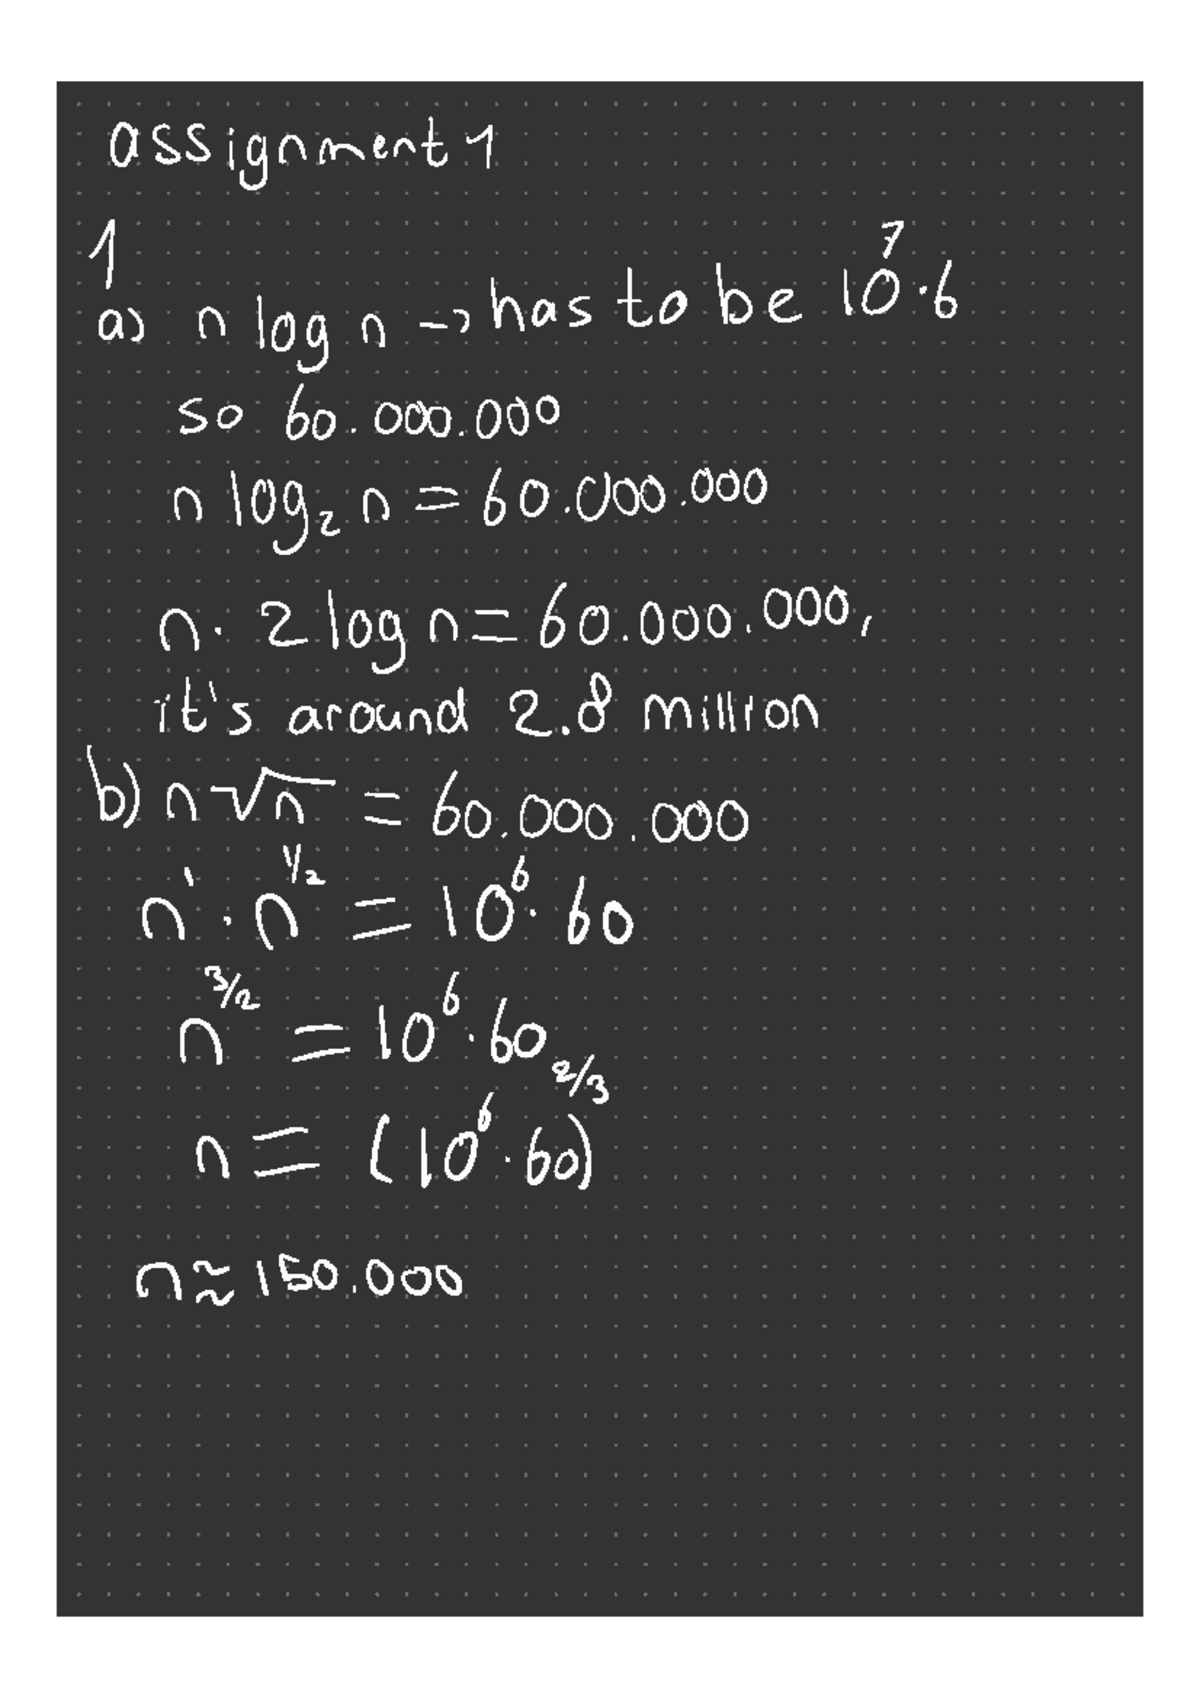 assignment 1
1
a) n log n -> has to be 10⁷·6
so 60.000.000
n log₂ n = 60.000.000
n· 2 log n = 60.000.000,
it's around 2.8 million
b) n√n = 60.000.000
n¹·n^1/2 = 10⁶·60
n^3/2 = 10⁶·60
n = (10⁶·60)^2/3
n ≈ 150.000